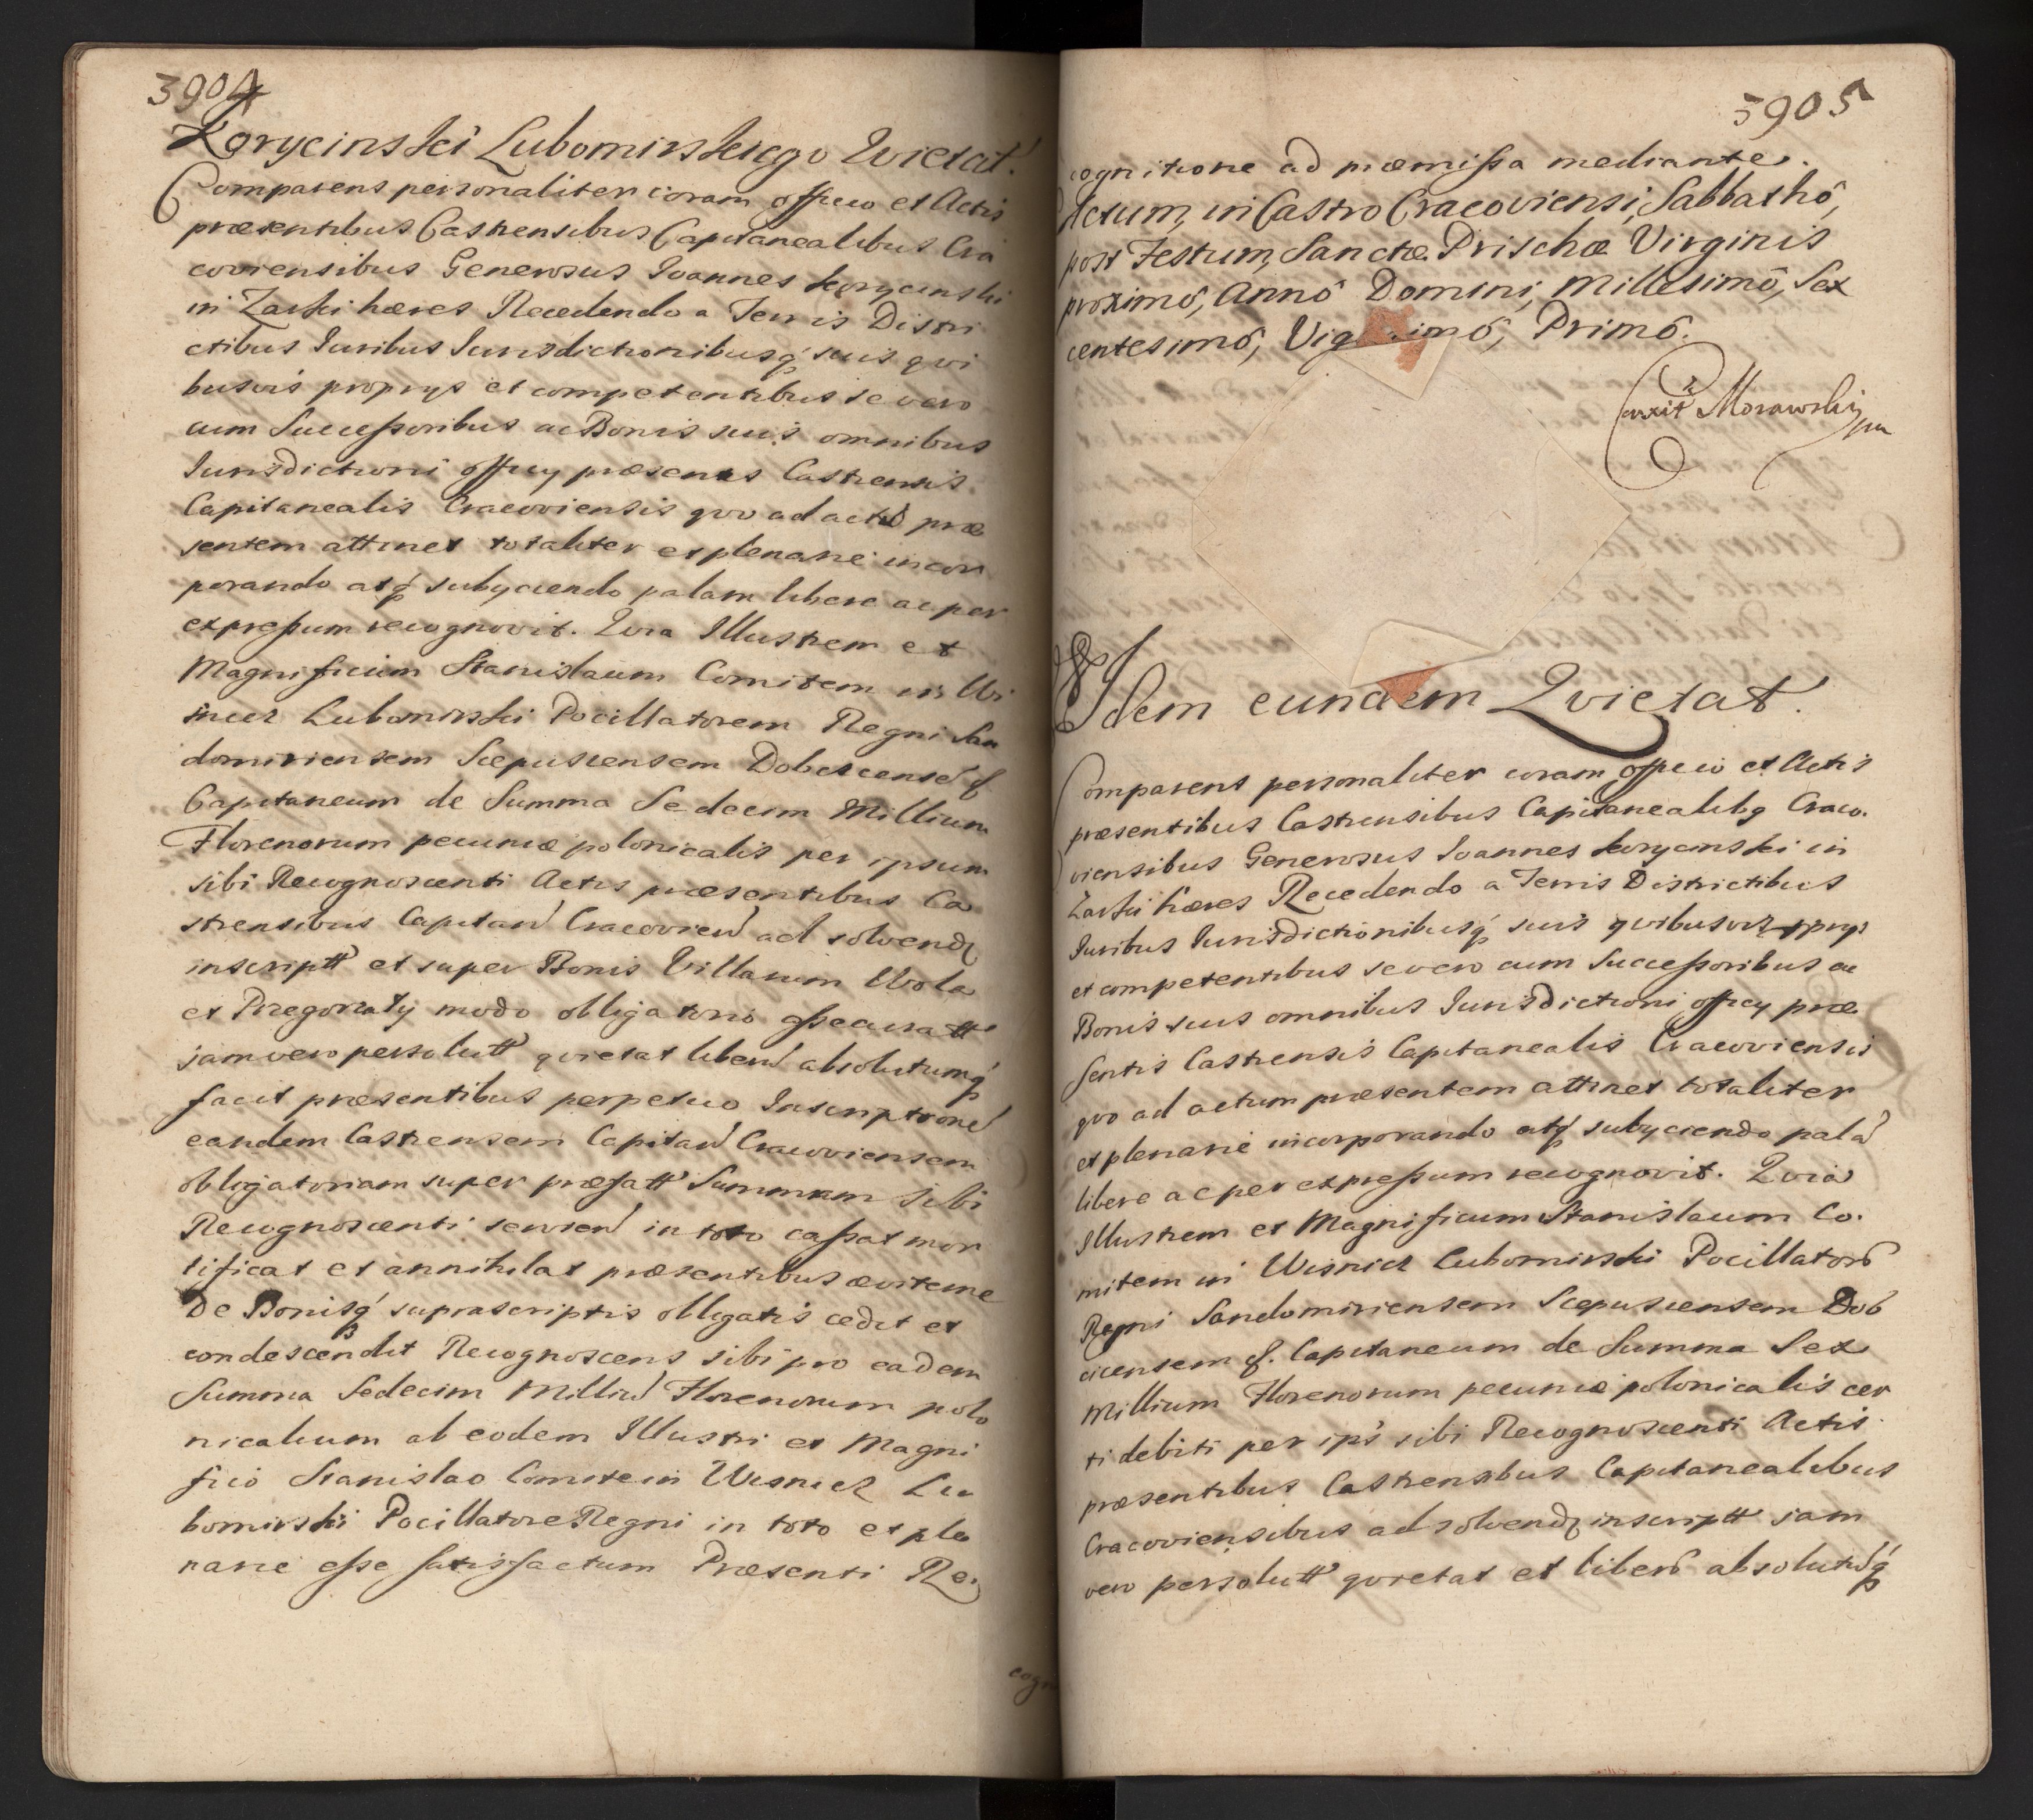 3904
Korycinski Lubomirskiego Quietat.
Comparens personaliter coram officio et Actis
præsentibus Castrensibus Capitanealibus Cra
coviensibus Generosus Joannes Korycinski
in Zarki hæres Recedendo a Terris Distri
ctibus Juribus Jurisdictionibusq́ suis qvi
busvis proprys et competentibus se vero
cum Successoribus ac Bonis suis omnibus
Jurisdictioni officy præsentis Castrensis
Capitanealis Cracoviensis qvo ad actū præ
sentem attinet totaliter et plenarie incor
porando atq́ subyciendo palam libere ac per
expressum recognovit. Qvia Illustrem et
Magnificum Stanislaum Comitem in Wi
snicz Lubomirski Pocillatorem Regni San
domiriensem Scepusiensem Dobczicensē &
Capitaneum de Summa Sedecim Millium
Florenorum pecuniæ polonicalis per ipsum
sibi Recognoscenti Actis præsentibus Ca
strensibus Capitan Cracovien ad solvend
inscriptt et super Bonis Villarum Wola
et Przegorzaly modo obligatorio assecuratt
jam vero persolutt qvietat liberū absolutumq́
facit præsentibus perpetuo Inscriptionē
eandem Castrensem Capitan Cracoviensem
obligatoriam super præfatt Summam sibi
Recognoscenti servien in toto cassat mor
tificat et annihilat præsentibus æviterne
De Bonisq́ suprascriptis obligatis cedit et
condescendit Recognoscens sibi pro eadem
Summa Sedecim Milliū Florenorum polo
nicalium ab eodem Illustri et Magni
fico Stanislao Comite in Wisnicz Lu
bomirski Pocillatore Regni in toto et ple
narie esse satisfactum Præsenti Re
cogni
3905
cognitione ad præmissa mediante.
Actum, in Castro Cracoviensi, Sabbathô,
post Festum, Sanctæ Prischæ Virginis
proximô, Annô Domini, Millesimô, Sex
centesimô, Vig imô, Primô.
Morawski
Idem eundem Qvietat.
Comparens personaliter coram officio et Actis
præsentibus Castrensibus Capitanealibq Craco.
viensibus Generosus Joannes Korycinski in
Zarki hæres Recedendo a Terris Districtibus
Juribus Jurisdictionibusq́ suis qvibusvis pprys
et competentibus se vero cum Successoribus ac
Bonis suis omnibus Jurisdictioni officy præ
sentis Castrensis Capitanealis Cracoviensis
qvo ad actum præsentem attinet totaliter
et plenarie incorporando atq́ subyciendo palā
libere ac per expressum recognovit. Qvia
Illustrem et Magnificum Stanislaum Co.
mitem in Wisnicz Lubomirski Pocillatorē
Regni Sandomiriensem Scepusiensem Dob
cicensem &. Capitaneum de Summa Sex
Millium Florenorum pecuniæ polonicalis cer
ti debiti per ips sibi Recognoscenti Actis
præsentibus Castrensibus Capitanealibus
Cracoviensibus ad solvend inscriptt jam
vero persolutt qvietat et liberū absolutūq́